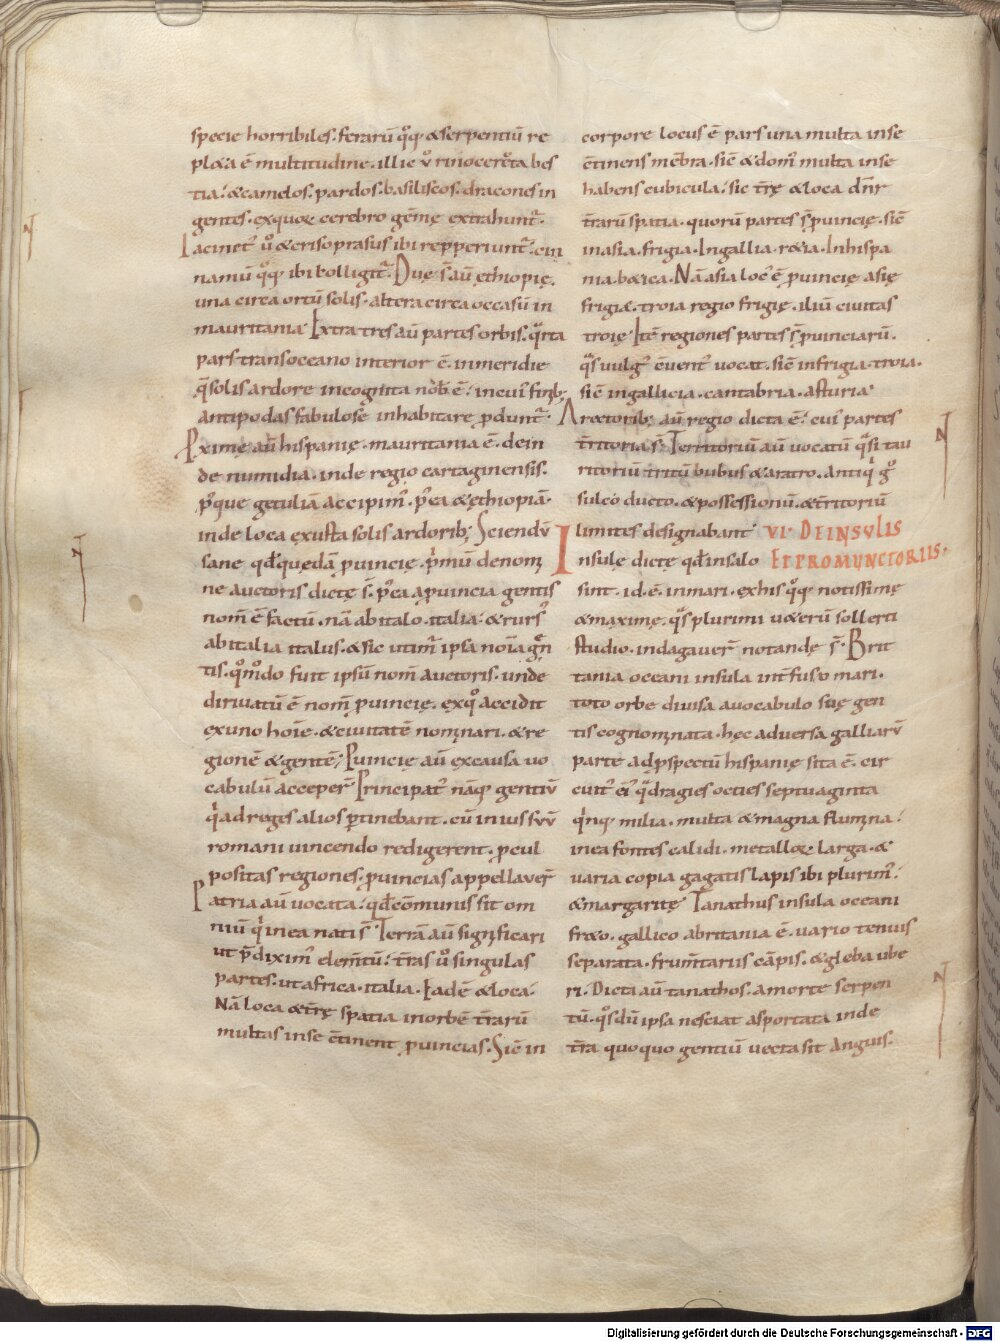 specie horribiles. ferarū q̊q; & serpentiū re
pl&a ē multitudine. illic v̊ rinocerōta bes
tia. & camelos. pardos. basiliscos. dracones in
gentes. ex quorum cerebro gēmę extrahunt᷑.
Iacinct᷑ v̊ & crisoprasus ibi repperiunt᷑. cin
namū q̊q; ibi colligit᷑. Duę s̄ aū ęthiopię.
una circa ortū solis. altera circa occasū in
mauritania. Extra tres aū partes orbis. q̄rta
pars trans oceanō interior ē. in meridie
q̄ solis ardore incognita nōb ē. in cui᷒ finib;
antipodas fabulose inhabitare ꝓdunt᷑.
Pximę aū hispanię. mauritania ē. dein
de numidia. inde regio cartaginensis.
p̄ que getuliā accipim᷒. p̄ ea & ęthiopiā.
inde loca exusta solis ardorib; Sciendū
sane qđ quedā ꝓuincię. p̄mū denomi
ne auctoris dictę s̄. p̄ ea a ꝓuincia gentis
nom̄ ē factū. nā ab italo. italia. & rurs᷒
ab italia italus. & sic utim᷒ ipsa noīa gn̄
tis. q̊mdo fuit ipsū nom̄ auctoris. unde
dirivatū ē nom̄ ꝓuincię. ex q̊ accidit
ex uno hoīe. & civitatē nominari. & re
gionē & gentē; Puincię aū ex causa vo
cabulū acceper̄. Principat᷒ nāq; gentiū
q̍ ad reges alios ꝑtinebant. cū in ius suū
romani vincendo redigerent. ꝓcul
positas regiones. ꝓuincias appellaver̄
Patria aū vocata. qđ cōmunis sit om
niū q̍ in ea nati s̄. Terrā aū significari
ut p̄dixim᷒ elem̄tū. t̄ras v̊ singulas
partes. ut africa. italia. Eadē & loca.
Nā loca & t̄rę spatia in orbē t̄rarū
multas in se c̄tinent ꝓuincias. Sic̄ in
corpore locus ē pars una multa in se
c̄tinens mēbra. sic̄ & dom᷒ multa in se
habens cubicula. sic t̄rę & loca dn̄r
t̄rarū spatia. quorū partes s̄ ꝓuincię. sic̄
in asia. frigia. In gallia. r&ia. In hispa
nia. b&ica. Nā asia loc᷒ ē ꝓuincię asię
frigia. troia regio frigię. iliū civitas
troię. Itē regiones partes s̄ ꝓuinciarū.
q̄s vulg᷒ c̄vent᷒ vocat. sic̄ in frigia. troia.
sic̄ in gallicia. cantabria. asturia.
A rectorib; aū regio dicta ē. cui᷒ partes
t̄rritoria s̄. Territoriū aū vocatū q̄si tau
ritoriū tritū bubus & aratro. Antiq̍ g̊
sulco ducto. & possessionū. & t̄ritoriū
limites designabant. VI. DE INSULIS
Insulę dictę qđ in salo ET PROMUNCTORIIS.
sint. id. ē. in mari. ex his q̊q; notissimę
& maximę. q̄s plurimi v&erū sollerti
studio. indagaver̄ notandę s̄. Brit
tania oceani insula int̄fuso mari.
toto orbe divisa a vocabulo suę gen
tis cognominata. hęc adversa galliarū
parte ad ꝓspectū hispanię sita ē. cir
cuit᷒ ei᷒ q̄dragies octies septuaginta
q̍nq; milia. multa & magna flumina.
in ea fontes calidi. metallorum larga. &
varia copia gagatis lapis ibi plurim᷒.
& margaritę. Tanathus insula oceani
fr&o. gallico a britania ē. vario tenuis
separata. frum̄tariis cāpis. & gleba ube
ri. Dicta aū tanathos. a morte serpen
tū. q̊s dū ipsa nesciat asportata inde
t̄ra quoquo gentiū vecta sit anguis.
Digitalisierung gefördert durch die Deutsche Forschungsgemeinschaft - DFG